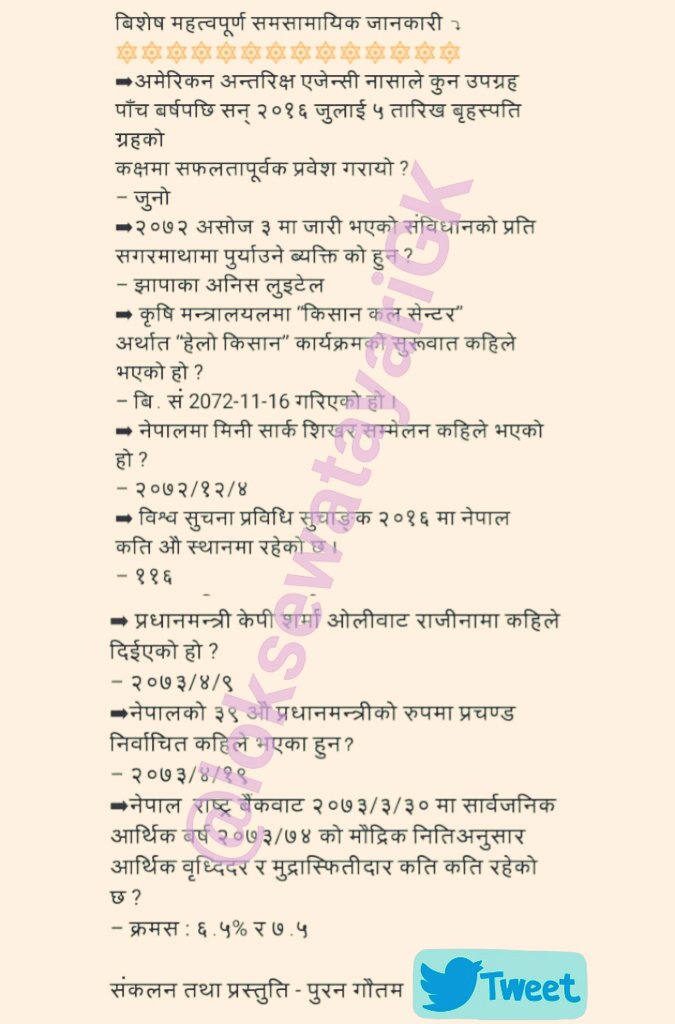 बिशेष महत्वपूर्ण समसामायिक जानकारी ⤵
➡अमेरिकन अन्तरिक्ष एजेन्सी नासाले कुन उपग्रह
पाँच बर्षपछि सन् २०१६ जुलाई ५ तारिख बृहस्पति
ग्रहको
कक्षमा सफलतापूर्वक प्रवेश गरायो ?
– जुनो
➡२०७२ असोज ३ मा जारी भएको संविधानको प्रति
सगरमाथामा पुर्याउने ब्यक्ति को हुन ?
– झापाका अनिस लुइटेल
➡ कृषि मन्त्रालयलमा “किसान कल सेन्टर”
अर्थात “हेलो किसान” कार्यक्रमको सुरूवात कहिले
भएको हो ?
– बि. सं 2072-11-16 गरिएको हो ।
➡ नेपालमा मिनी सार्क शिखर सम्मेलन कहिले भएको
हो ?
– २०७२/१२/४
➡ विश्व सुचना प्रविधि सुचाङ्क २०१६ मा नेपाल
कति औ स्थानमा रहेको छ ।
– ११६
➡ प्रधानमन्त्री केपी शर्मा ओलीवाट राजीनामा कहिले
दिईएको हो ?
– २०७३/४/९
➡नेपालको ३९ औ प्रधानमन्त्रीको रुपमा प्रचण्ड
निर्वाचित कहिले भएका हुन ?
– २०७३/४/१९
➡नेपाल राष्ट्र बैंकवाट २०७३/३/३० मा सार्वजनिक
आर्थिक बर्ष २०७३/७४ को मौद्रिक नितिअनुसार
आर्थिक वृध्दिदर र मुद्रास्फितीदार कति कति रहेको
छ ?
– क्रमस : ६.५% र ७.५
संकलन तथा प्रस्तुति - पुरन गौतम
Tweet
@loksewatayariGK